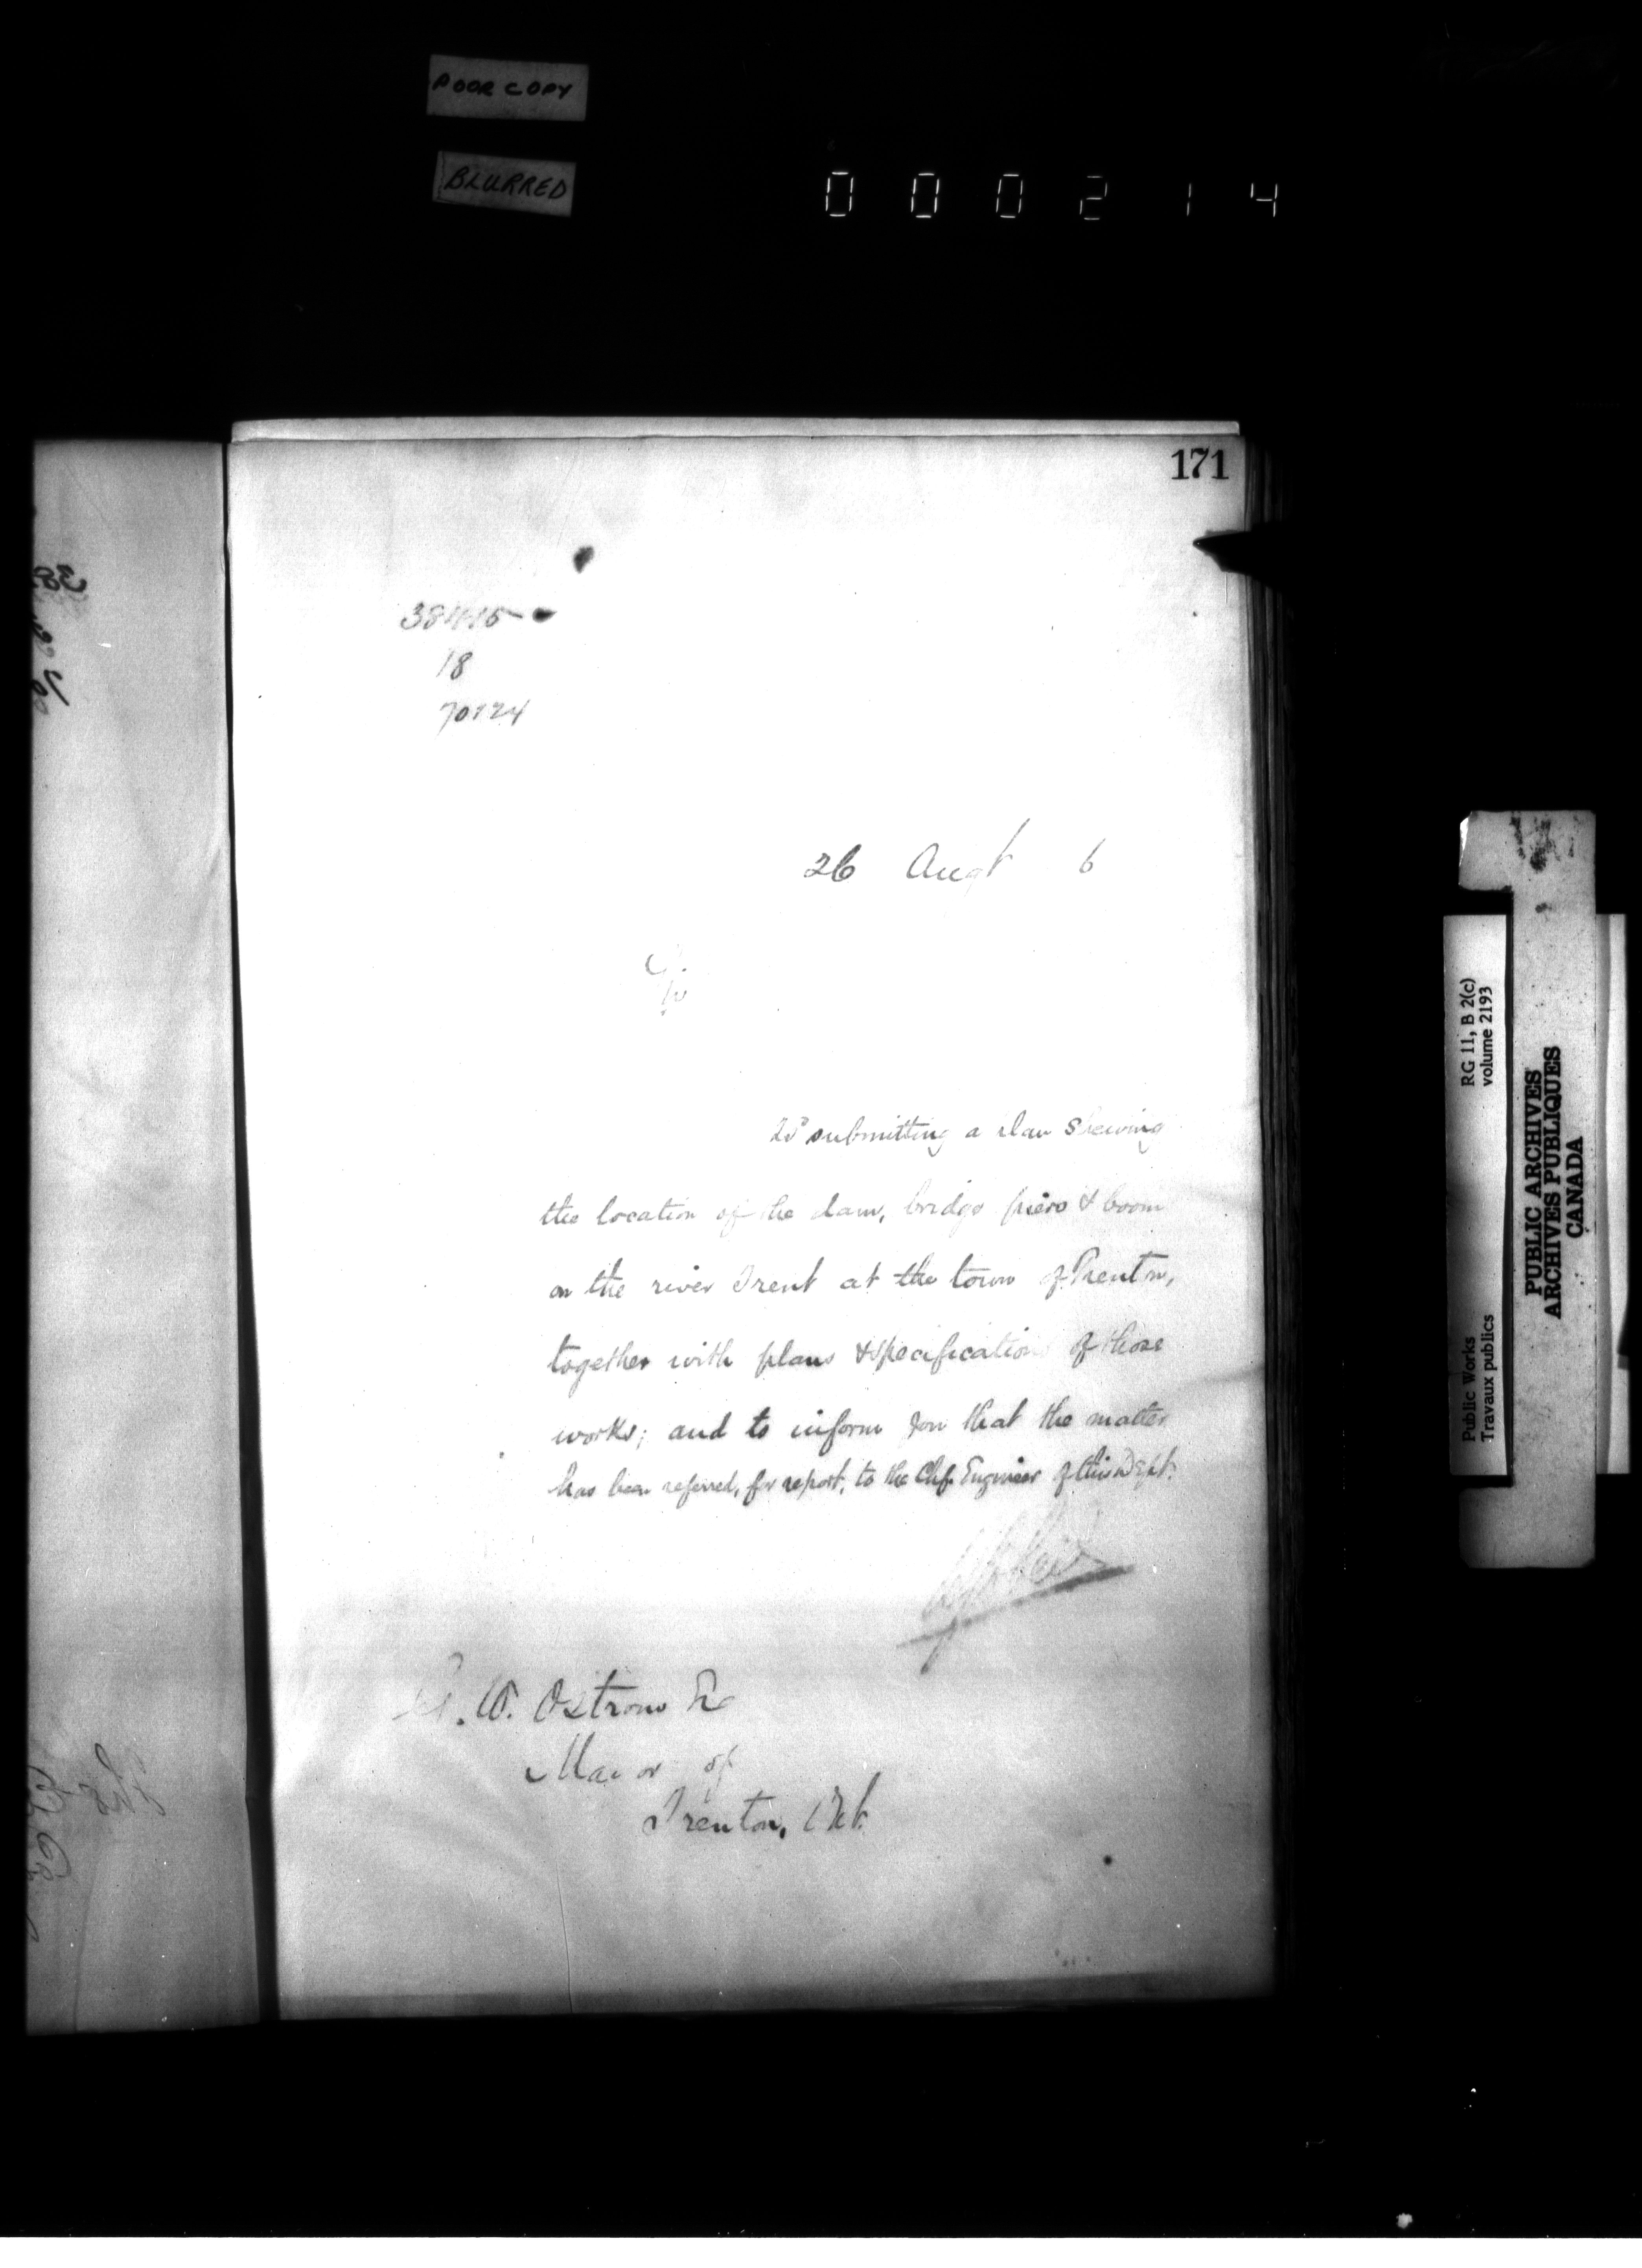 POOR COPY
BLURRED
000214
171
18
26 Augt 6
Sir
submitting a plan shewing
the location of the dam, bridge piers & boom
on the river Trent at the town of Trenton,
together with plans & specifications of those
works; and to inform you that the matter
has been referred, for report, to the Chf. Engineer of this Dept.
W. Ostrom
Mayor of
Trenton, Ont.
RG 11, B 2(c)
volume 2193
Public Works
Travaux publics
PUBLIC ARCHIVES
ARCHIVES PUBLIQUES
CANADA